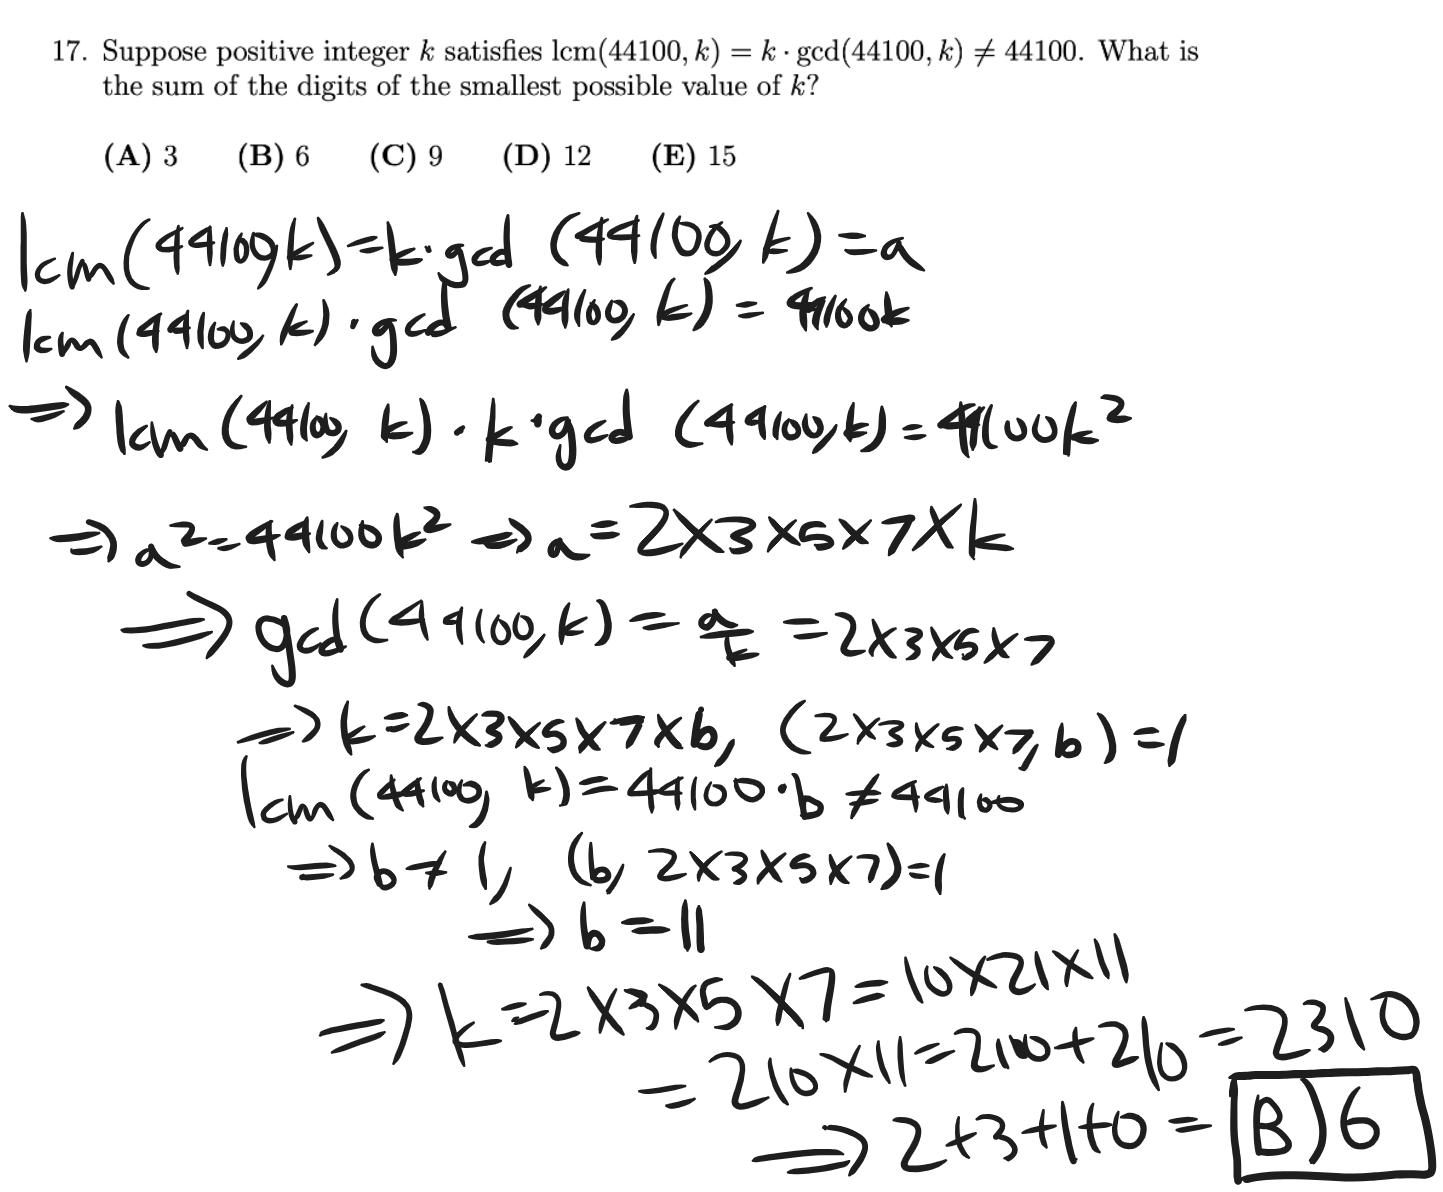 17. Suppose positive integer k satisfies lcm(44100, k) = k · gcd(44100, k) ≠ 44100. What is
the sum of the digits of the smallest possible value of k?
(A) 3 (B) 6 (C) 9 (D) 12 (E) 15
lcm(44100,k)=k·gcd (44100, k) = a
lcm (44100, k) · gcd (44100, k) = 44100k
⇒ lcm (44100, k) · k · gcd (44100, k) = 44100k²
⇒ a² = 44100k² ⇒ a = 2×3×5×7×k
⇒ gcd (44100, k) = a/k = 2×3×5×7
⇒ k=2×3×5×7×b, (2×3×5×7, b) = 1
lcm (44100, k) = 44100·b ≠ 44100
⇒ b ≠ 1, (b, 2×3×5×7)=1
⇒ b = 11
⇒ k=2×3×5×7=10×21×11
= 210×11=2100+210=2310
⇒ 2+3+1+0 = B) 6